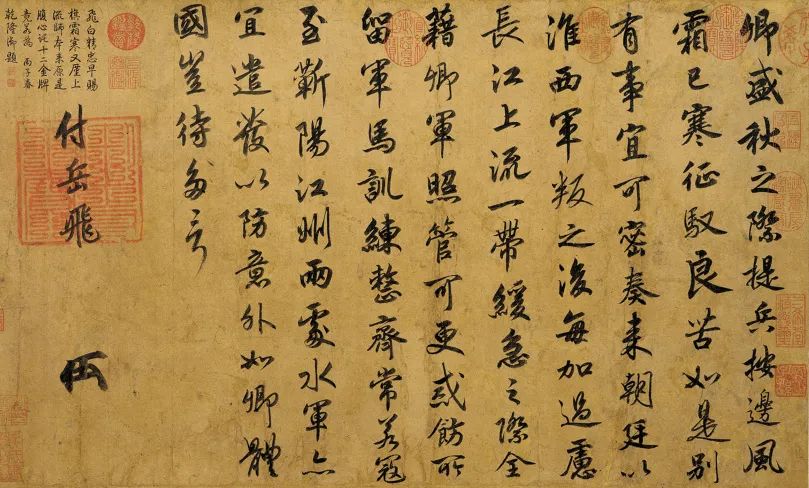 卿盛秋之際提兵按邊風
霜已寒征馭良苦如是別
有事宜可密奏来朝廷以
淮西軍叛之後每加過慮
長江上流一帶緩急之際全
藉卿軍照管可更戒飭所
留軍馬訓練整齊常若寇
至蘄陽江州兩處水軍亦
宜遣發以防意外如卿體
國豈待多言
付岳飛
飛白精忠早賜
旗霜寒又厪上
流師本来原是
腹心託十二金牌
竟若為 丙子春
乾隆御題